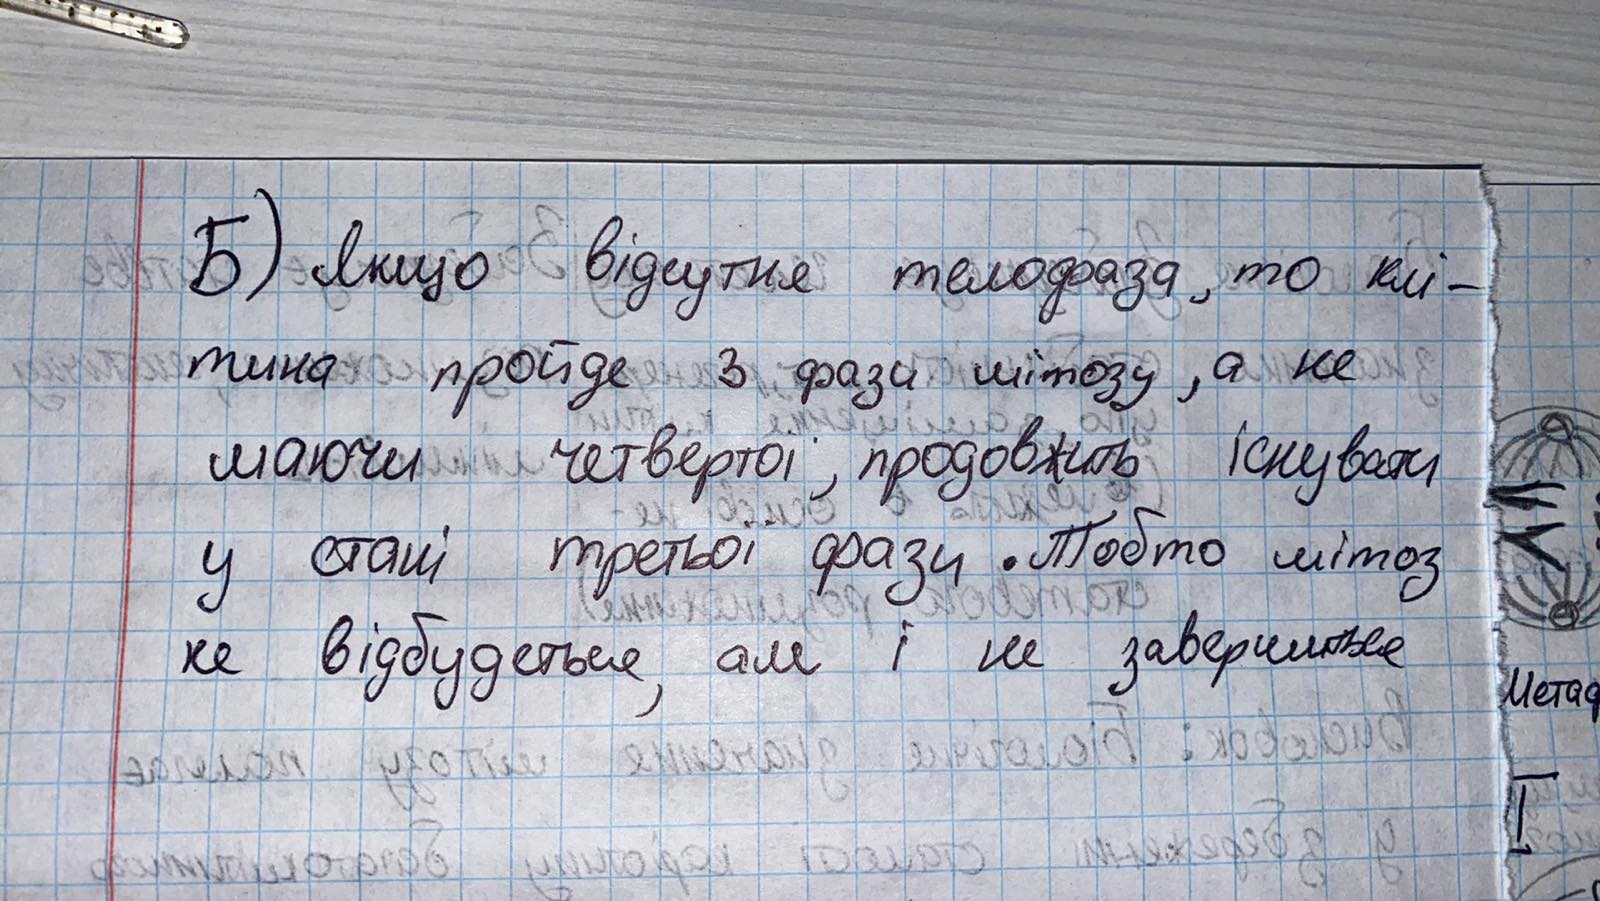 Б) Якщо відсутня телофаза, то клі-
тина пройде 3 фази мітозу, а не
маючи четвертої, продовжить існувати
у стані третьої фази. Тобто мітоз
не відбудеться, але і не завершиться
Метаф
I